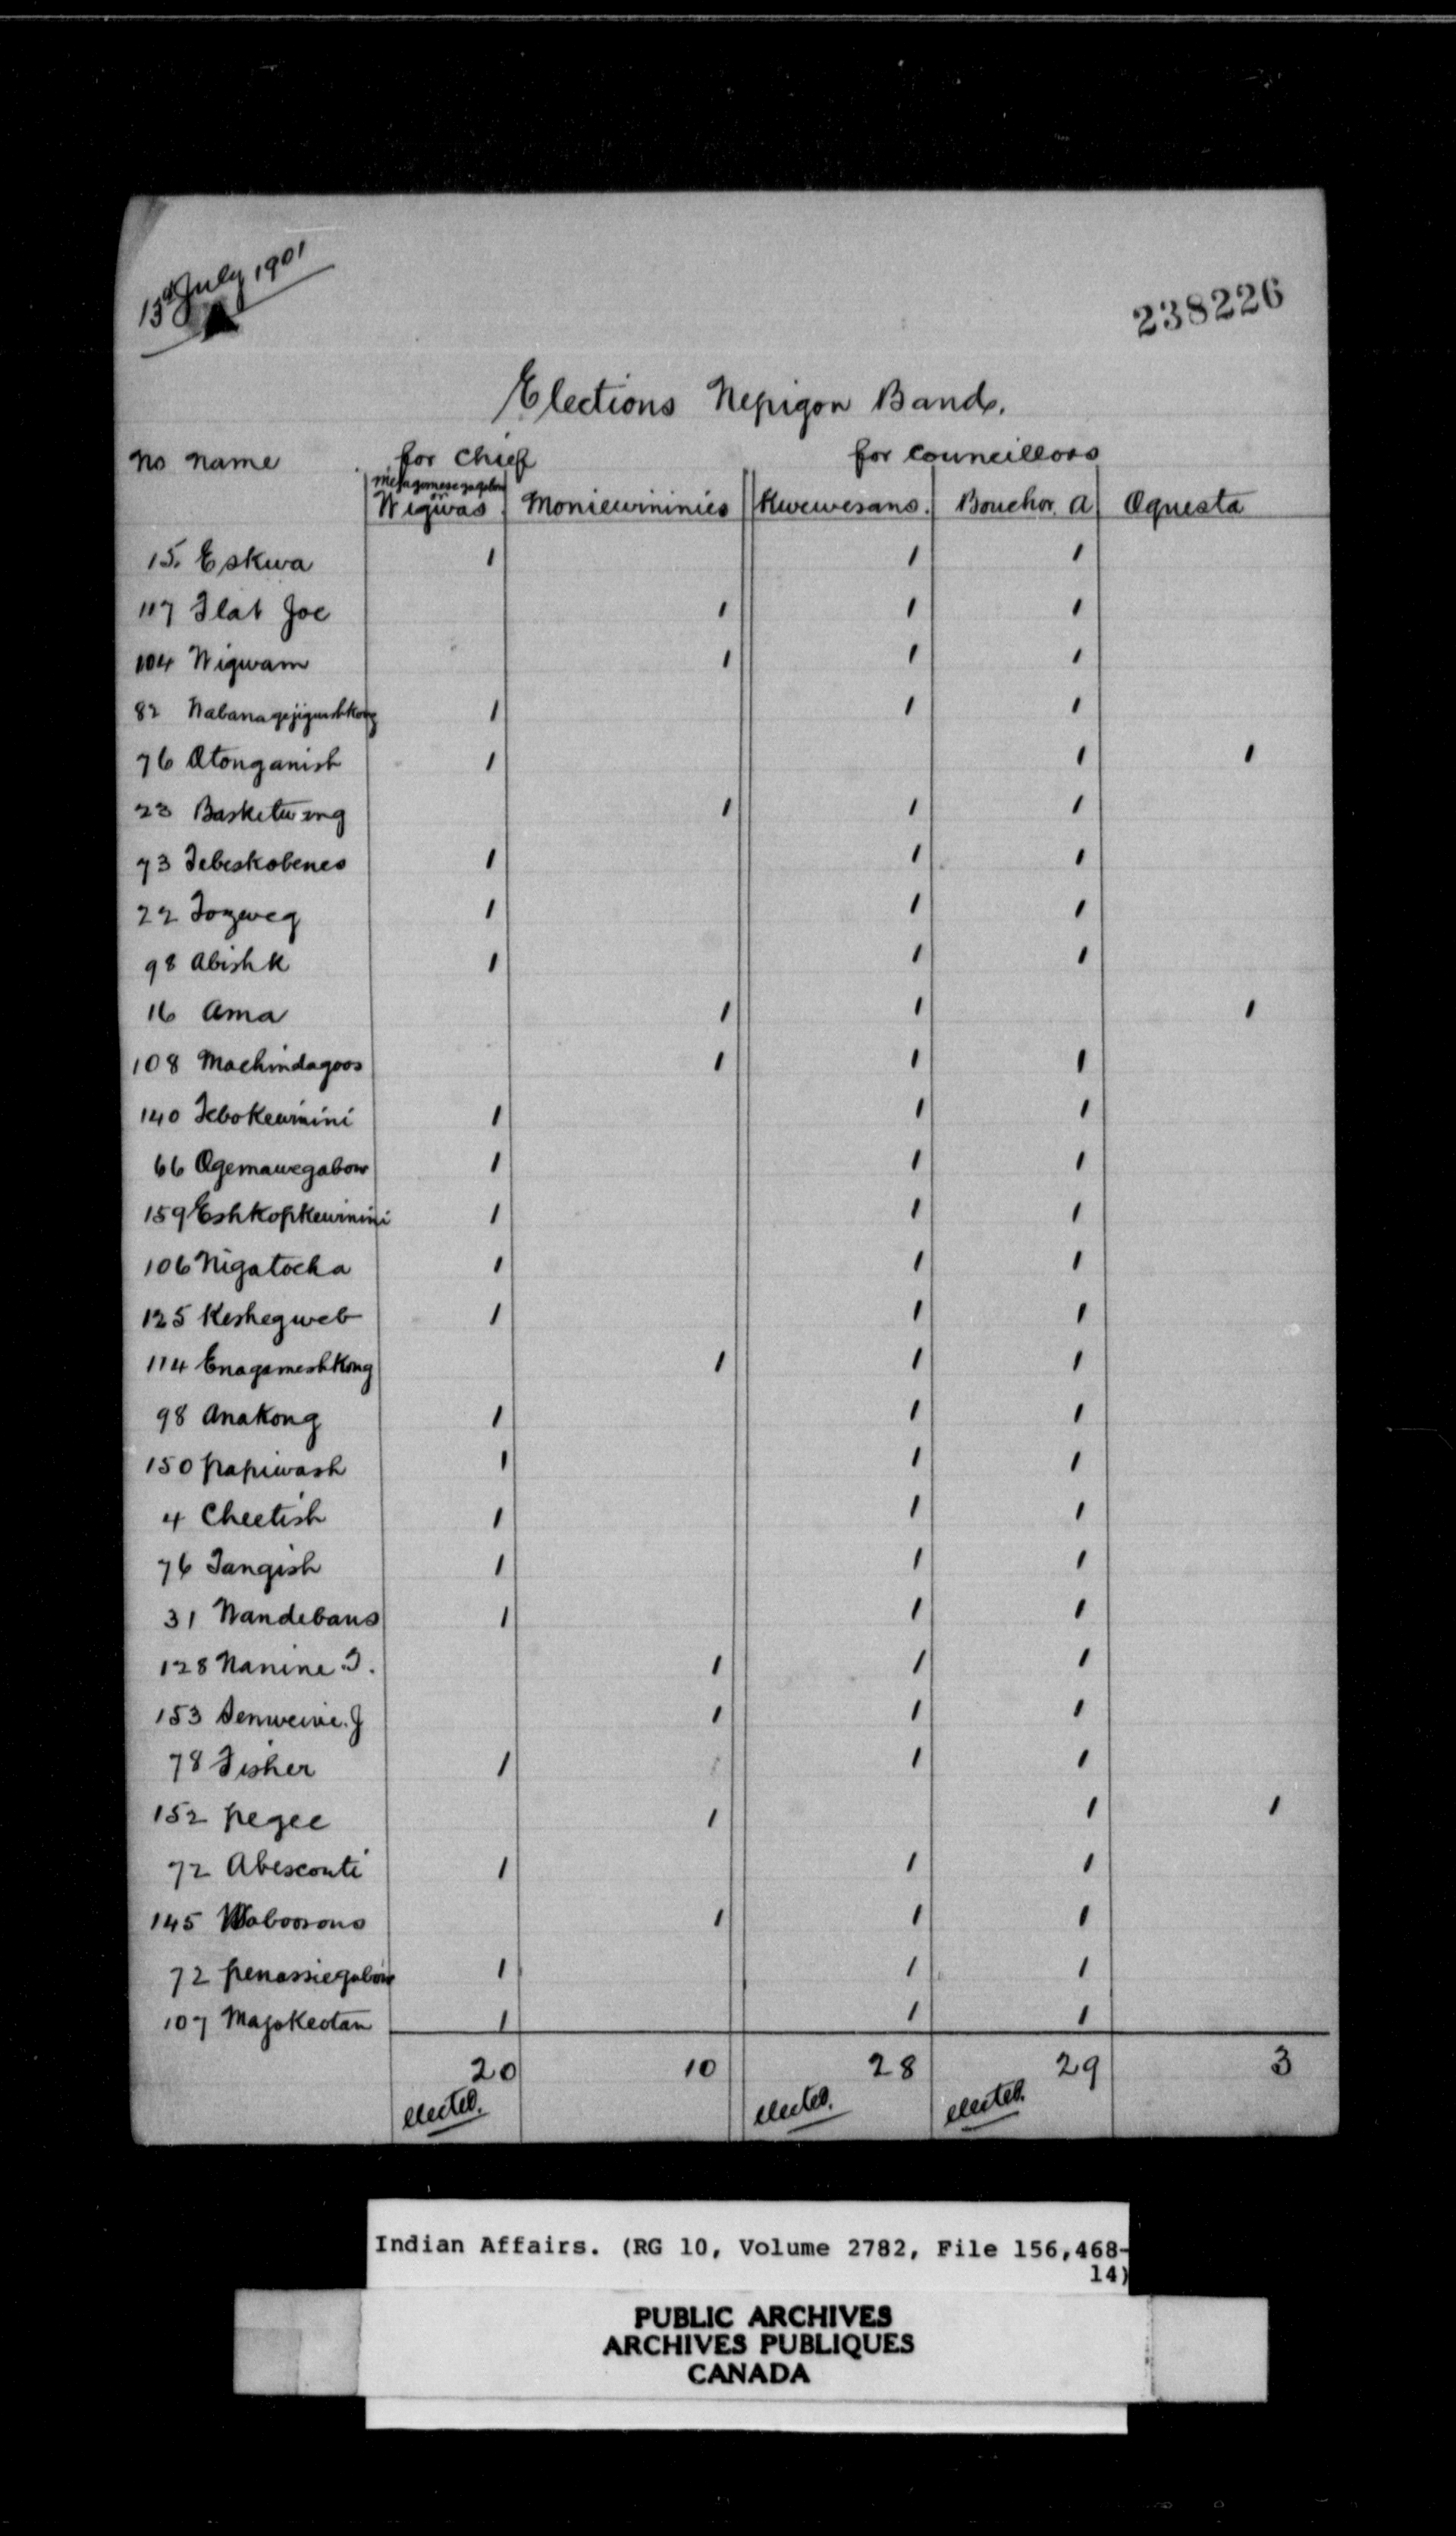 13th July 1901
238226
Elections Nepigon Band.
No name for Chief for Councillors
Wigwas Moniewininies Kwewesans. Bouchor. A Oquesta
15. Eskwa 1 1 1
117 Flat Joe 1 1 1
104 Wigwam 1 1 1
82 1 1 1
76 Otonganish 1 1 1
23 1 1 1
73 Tebeskobenes 1 1 1
22 1 1 1
98 Abishk 1 1 1
16 Ama 1 1 1
108 Machindagoos 1 1 1
140 Tebokewinini 1 1 1
66 Ogemawegabow 1 1 1
159 Eshkopkewinini 1 1 1
106 Nigatocha 1 1 1
125 Keshegweb 1 1 1
114 Enagameshkong 1 1 1
98 Anakong 1 1 1
150 papiwash 1 1 1
4 Cheetish 1 1 1
76 Tangish 1 1 1
31 1 1 1
128 Nanine. T. 1 1 1
153 1 1 1
78 Fisher 1 1 1
152 pegee 1 1 1
72 Abesconti 1 1 1
145 Waboosons 1 1 1
72 penassiegabow 1 1 1
107 Magokeotan 1 1 1
20 10 28 29 3
elected. elected. elected.
Indian Affairs. (RG 10, Volume 2782, File 156,468-
14)
PUBLIC ARCHIVES
ARCHIVES PUBLIQUES
CANADA